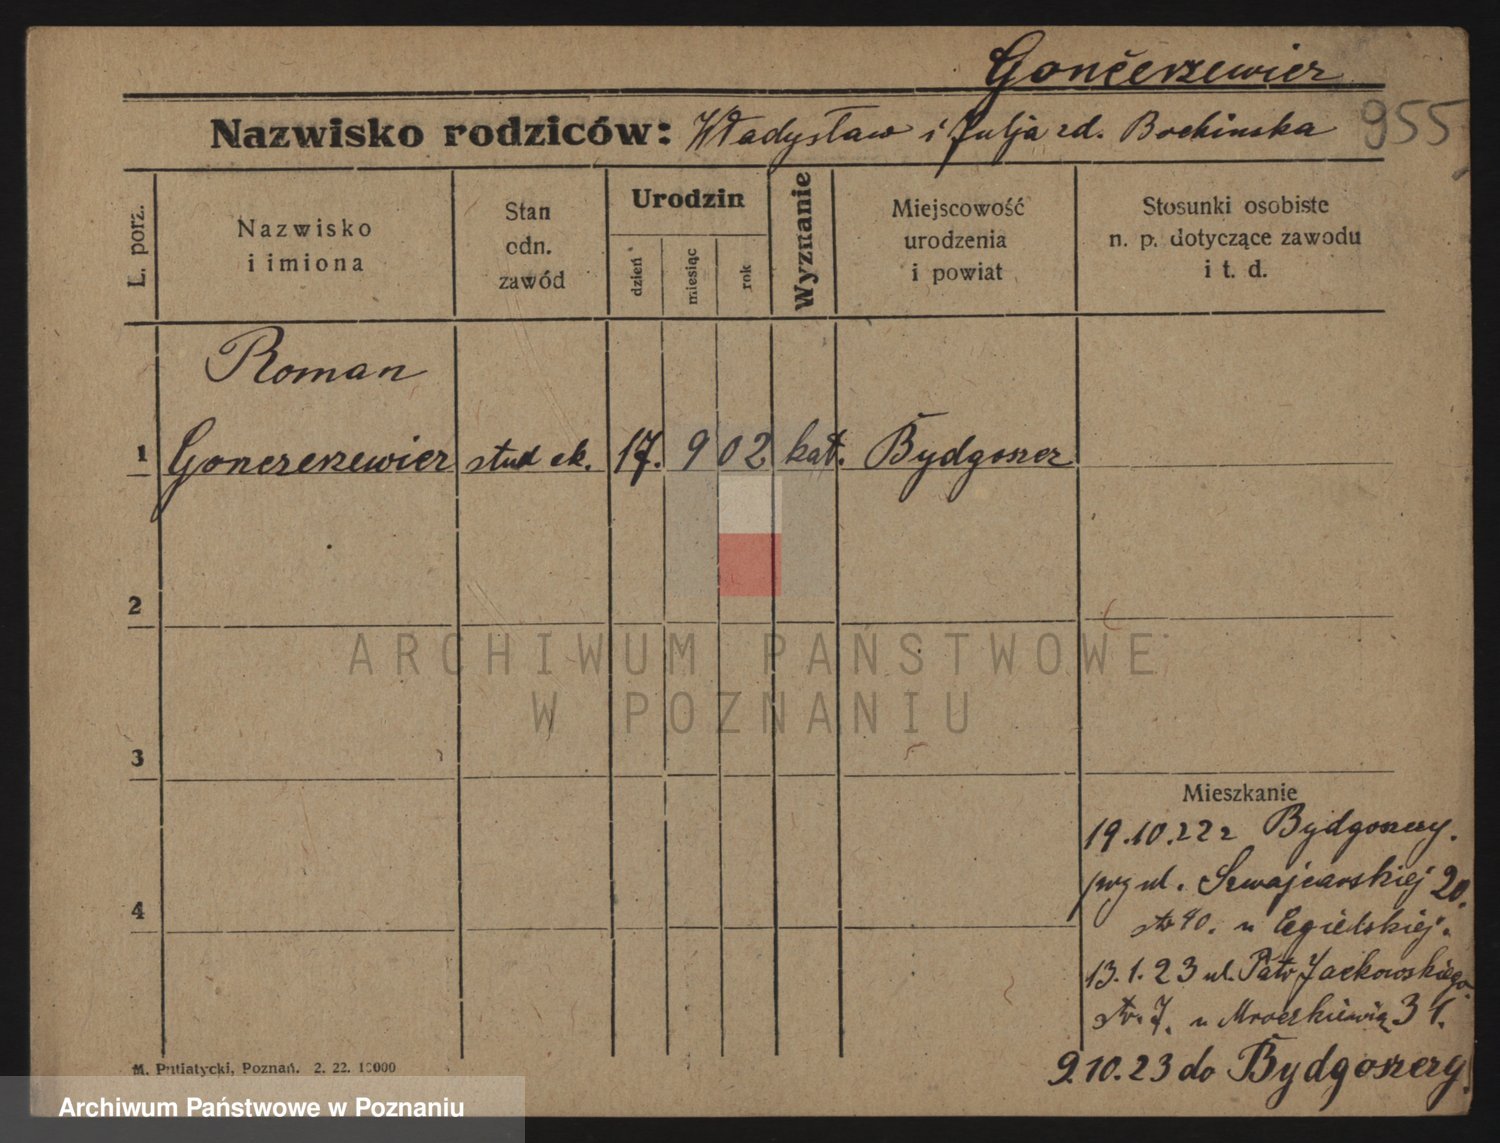 Gončerzewicz
Nazwisko rodziców: Władysław i Julja zd. Bochinska 955
L. porz.
Nazwisko
i imiona
Stan
odn.
zawód
Urodzin
dzień
miesiąc
rok
Wyznanie
Miejscowość
urodzenia
i powiat
Stosunki osobiste
n. p. dotyczące zawodu
i t. d.
Roman
1 Gonczerzewicz stud ek. 17. 9 02 kat. Bydgoszcz
2
ARCHIWUM PAŃSTWOWE
W POZNANIU
3
Mieszkanie
19.10.22 z Bydgoszczy.
ul. Szwajcarskiej 20.
40. u Cegielskiej.
4
13.1.23 ul. Jackowskiego
7. u 31.
9.10.23 do Bydgoszczy
M. Putiatycki, Poznań. 2. 22. 10000
Archiwum Państwowe w Poznaniu